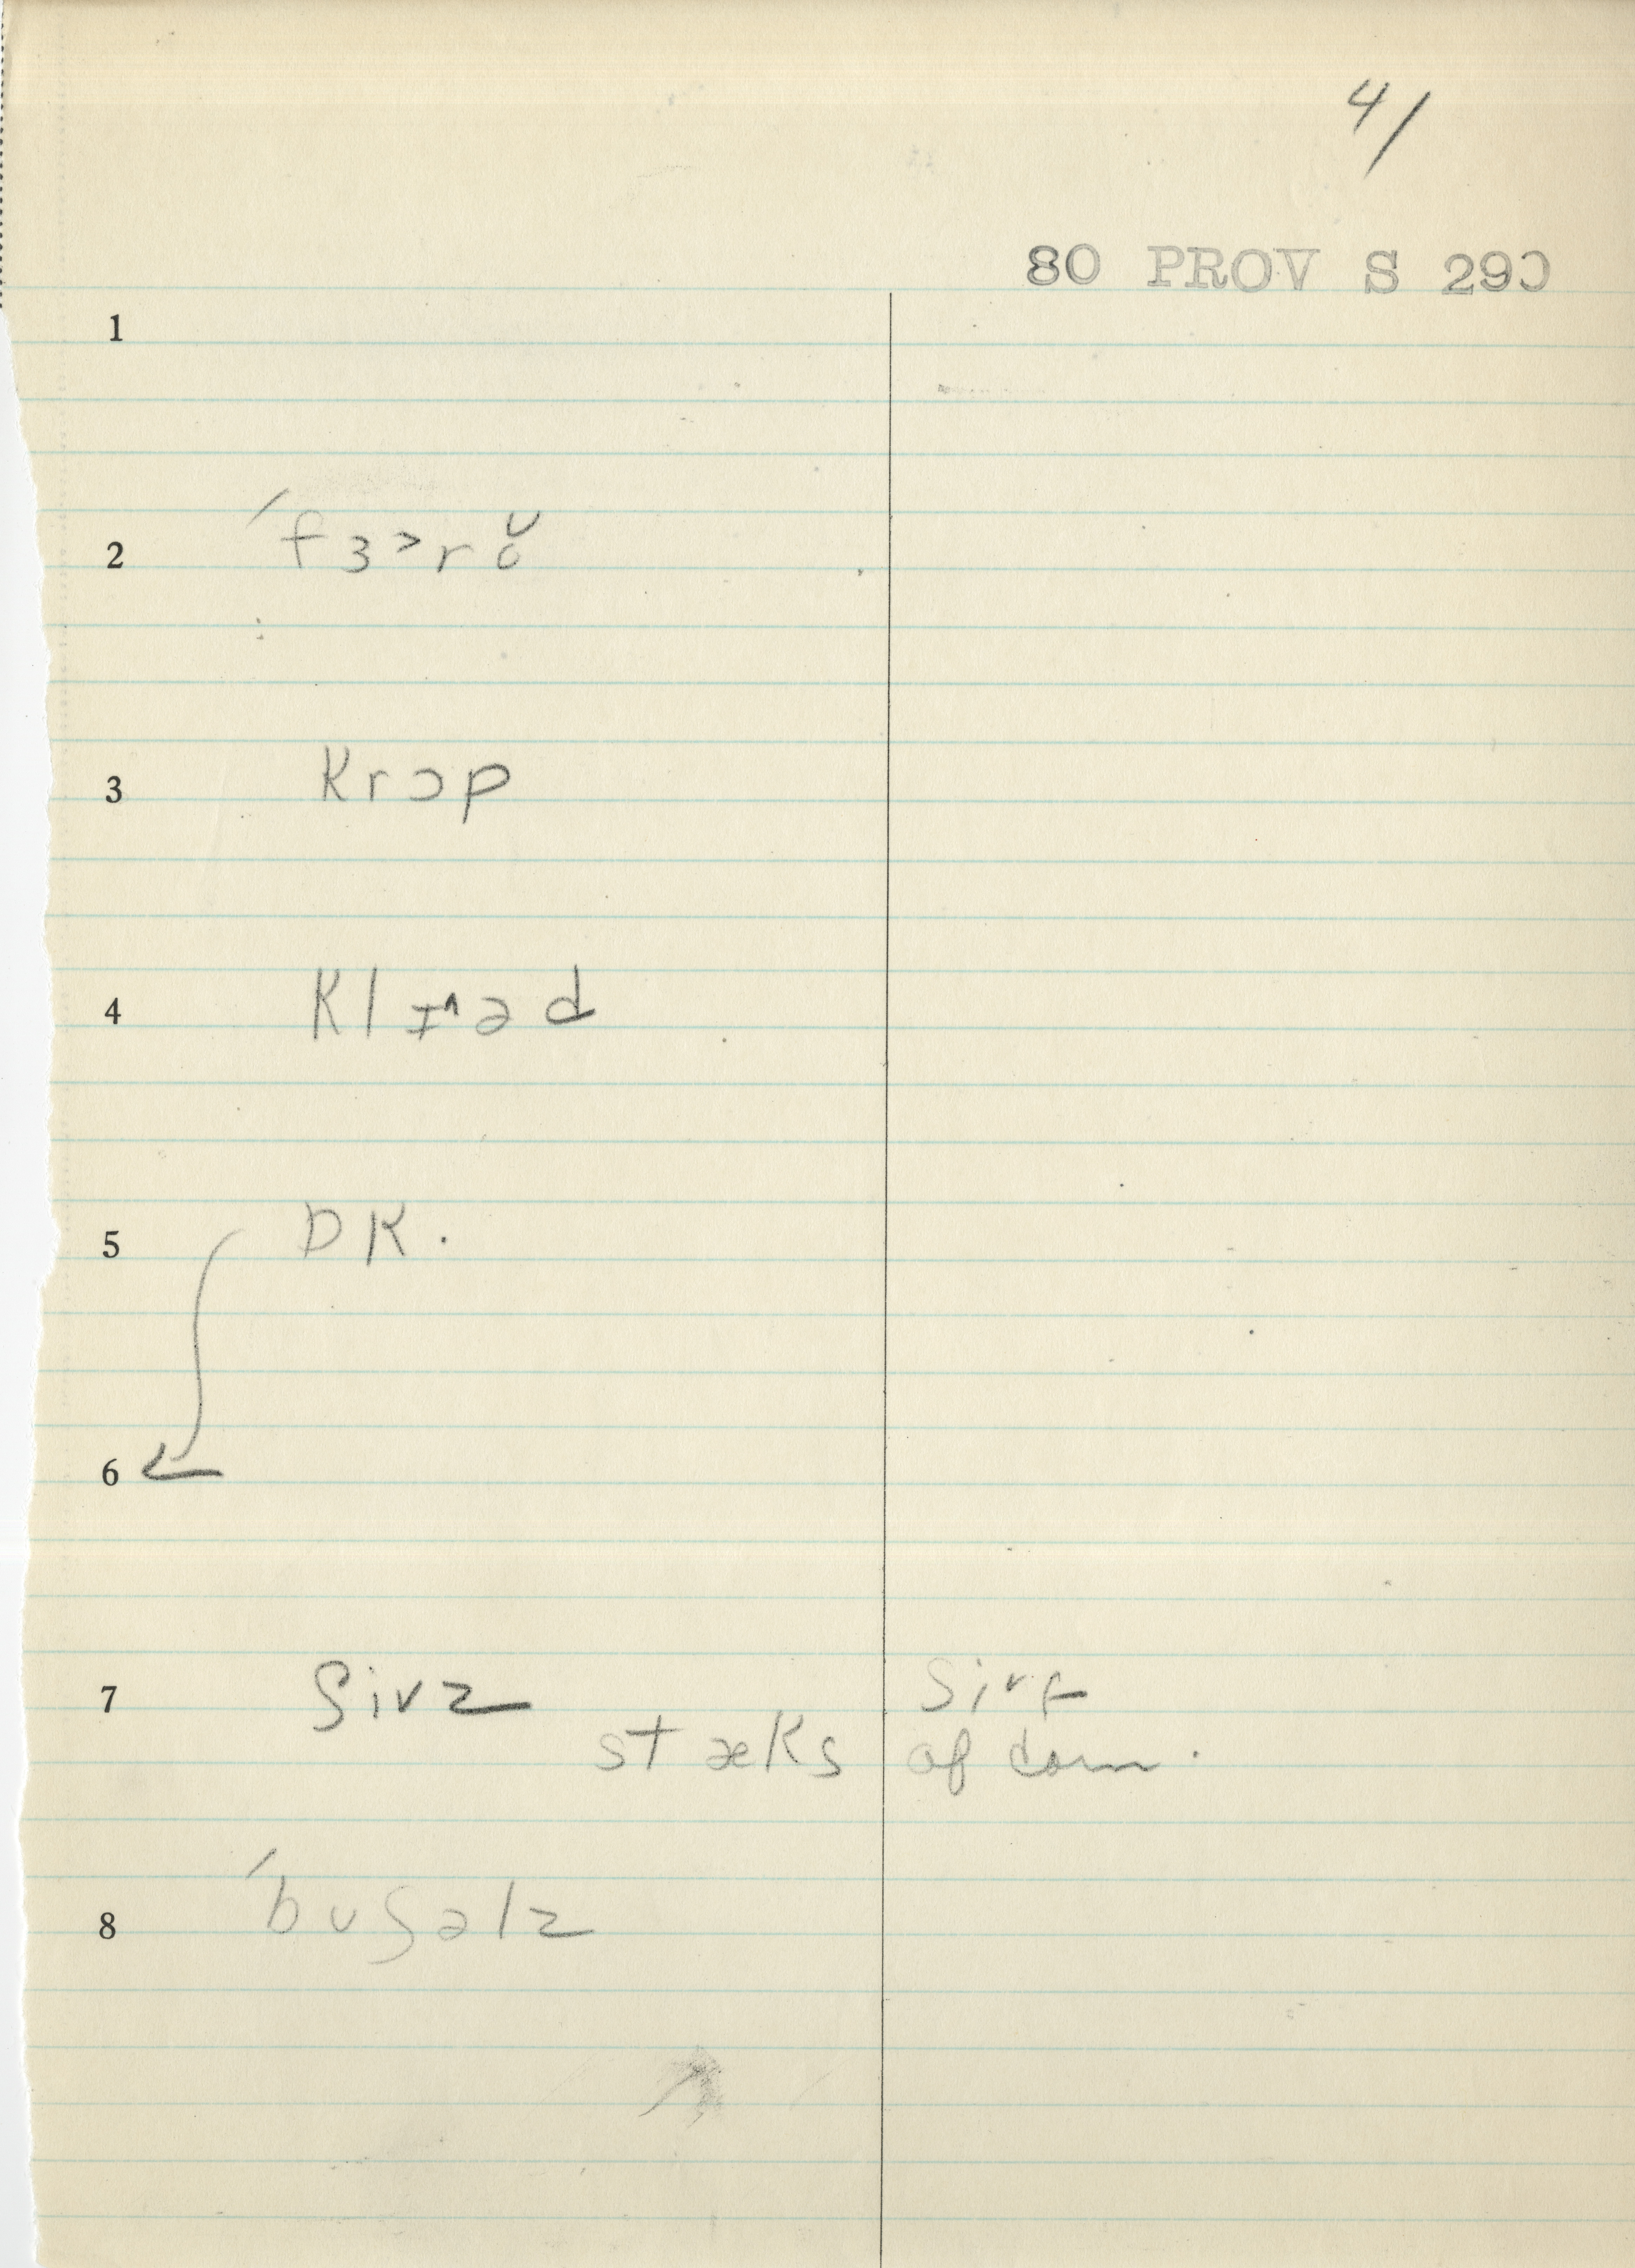 4/
80 PROV S 290
1
2 ˊfɜ˃rŏ
3 Krɔp
4 Klɪ˄əd
5 DK.
6
7 ʃivz
stæks of corn.
8 ˊbuʃəlz